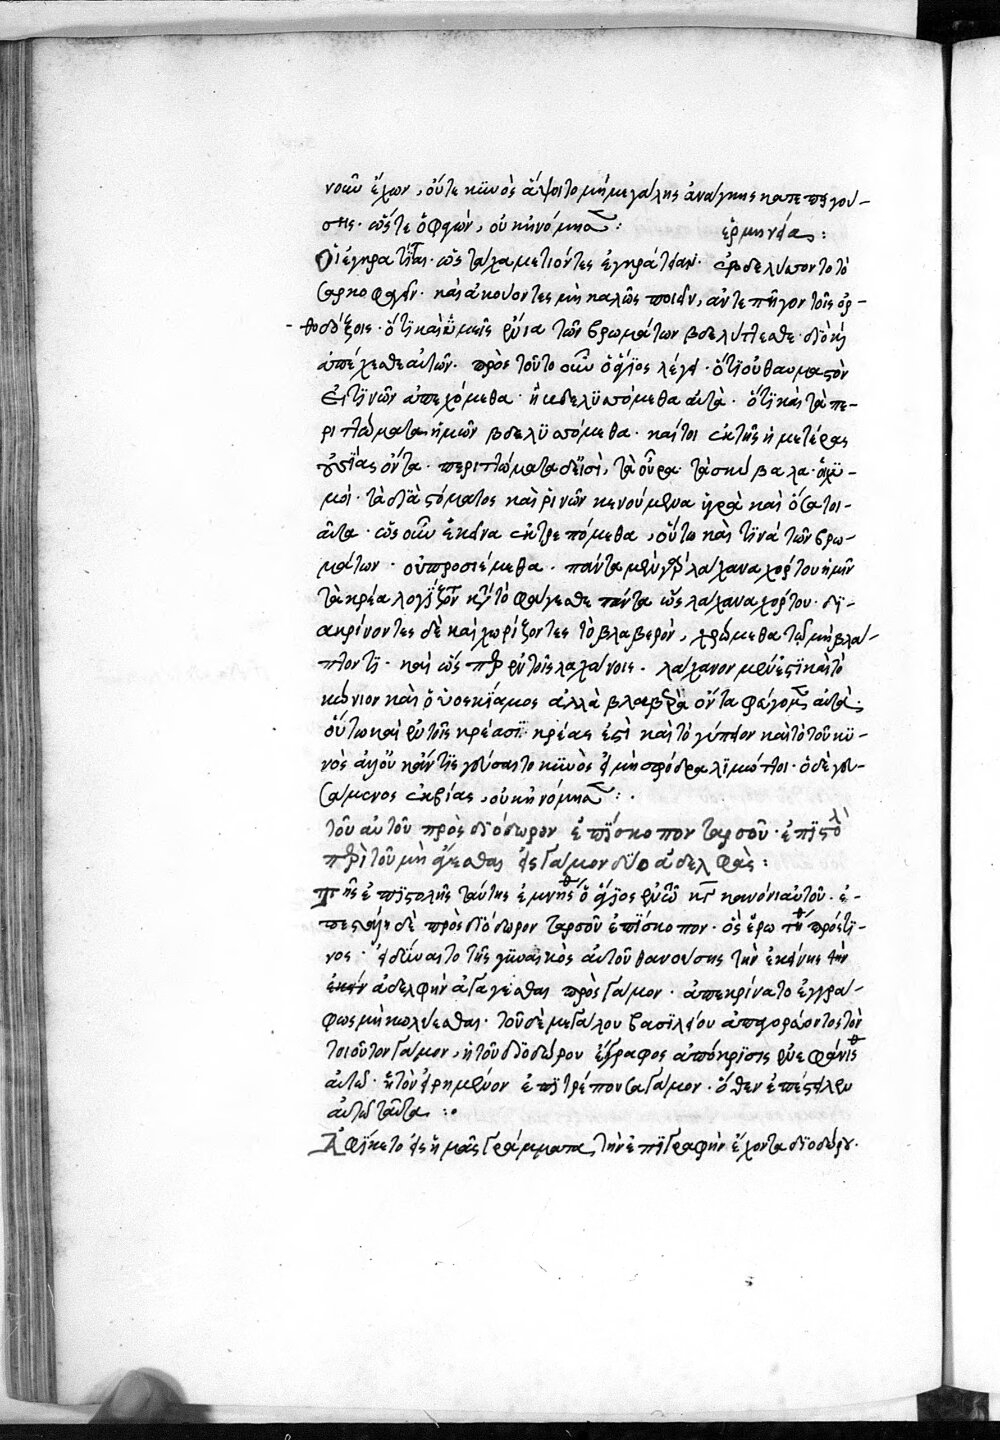 νοῦν ἔχων, οὔτε κυνὸς ἅψοιτο μὴ μεγάλης ἀνάγκης κατεπειγού-
σης· ὥστε ὁ φαγὼν, οὐκ ἠνόμησε: ἑρμηνεία:
Οἱ ἐγκρατῖται· ὡς τάχα μετιόντες ἐγκράτειαν· ἐβδελύττοντο τὸ
σαρκοφαγεῖν· καὶ ἀκούοντες μὴ καλῶς ποιεῖν, ἀντεπῆγον τοῖς ὀρ-
θοδόξοις· ὅτι καὶ ὑμεῖς ἔνια τῶν βρωμάτων βδελύττεσθε· διὸ καὶ
ἀπέχεσθε αὐτῶν· πρὸς τοῦτο οὖν ὁ ἅγιος λέγει· ὅτι οὐ θαυμαστὸν
εἰ τινῶν ἀπεχόμεθα· ἢ βδελυσσόμεθα αὐτά· ὅτι καὶ τὰ πε-
ριττώματα ἡμῶν βδελυσσόμεθα· καίτοι ἐκ τῆς ἡμετέρας
οὐσίας ὄντα· περιττώματα δέ εἰσι, τὰ οὖρα· τὰ σκύβαλα·
τὰ διὰ στόματος καὶ ῥινῶν κενούμενα ὑγρὰ καὶ ὅσα τοι-
αῦτα· ὡς οὖν ἐκεῖνα ἐκτρεπόμεθα, οὕτω καὶ τινὰ τῶν βρω-
μάτων· οὐ προσιέμεθα· πάντα μὲν γὰρ λάχανα χόρτου ἡμῖν
τὰ κρέα λογίζονται κατὰ τὸ φάγεσθε πάντα ὡς λάχανα χόρτου· δι-
ακρίνοντες δὲ καὶ χωρίζοντες τὸ βλαβερόν, χρώμεθα τῷ μὴ βλά-
πτοντι· καὶ ὥσπερ ἐν τοῖς λαχάνοις· λάχανον μέν ἐστι καὶ τὸ
κώνιον καὶ ὁ ὑοσκύαμος ἀλλὰ βλαβερὰ ὄντα φάγομεν αὐτά;
οὕτω καὶ ἐν τοῖς κρέασι· κρέας ἐστὶ καὶ τὸ γύπειον καὶ τὸ τοῦ κυ-
νὸς ἀλλ' οὐκ ἄν τις γεύσαιτο κυνὸς εἰ μὴ σφόδρα λιμώττοι· ὁ δὲ γευ-
σάμενος ἐκ βίας, οὐκ ἠνόμησε:
τοῦ αὐτοῦ πρὸς διόδωρον ἐπίσκοπον ταρσοῦ· ἐπιστολὴ
περὶ τοῦ μὴ ἄγεσθαι εἰς γάμον δύο ἀδελφάς:
Τῆς ἐπιστολῆς ταύτης ἐμνήσθη ὁ ἅγιος ἐν τῷ κγʹ κανόνι αὐτοῦ· ἐ-
πεστάλη δὲ πρὸς διόδωρον ταρσοῦ ἐπίσκοπον· ὃς ἐρωτηθεὶς παρά τι-
νος· εἰ δύναιτο τῆς γυναικὸς αὐτοῦ θανούσης τὴν ἐκείνης τὴν
ἐκείν ἀδελφὴν ἀγαγέσθαι πρὸς γάμον· ἀπεκρίνατο ἐγγρά-
φως μὴ κωλύεσθαι· τοῦ δὲ μεγάλου βασιλείου ἀπαγορεύοντος τὸν
τοιοῦτον γάμον, ἡ τοῦ διοδώρου ἔγγραφος ἀπόκρισις ἐνεφανίσθη
αὐτῷ· τὸν εἰρημένον ἐπιτρέπουσα γάμον· ὅθεν ἐπέστειλεν
αὐτῷ ταῦτα:
Ἀφίκετο εἰς ἡμᾶς γράμματα, τὴν ἐπιγραφὴν ἔχοντα διοδώρου·